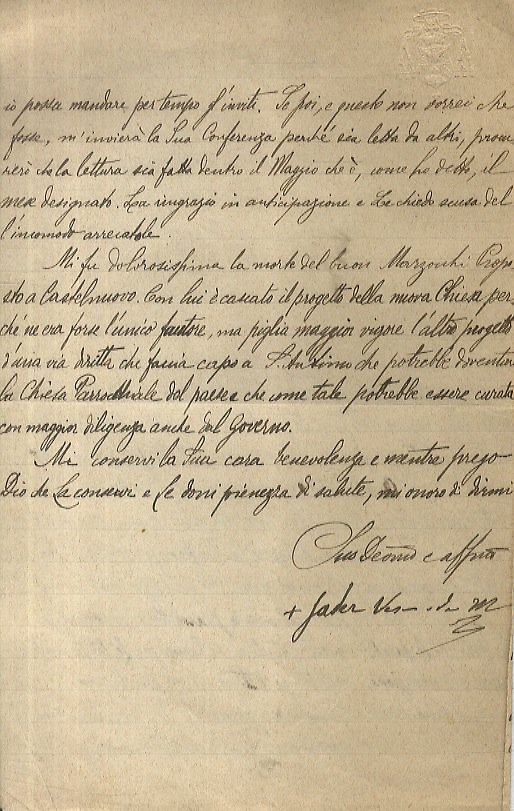 io possa mandare per tempo gl'inviti. Se poi, e questo non vorrei che
fosse, m'invierà la Sua Conferenza perché sia letta da altri, procu
rerò che la lettura sia fatta dentro il Maggio che è, come ho detto, il
mese designato. La ringrazio in anticipazione e Le chiedo scusa del
l'incomodo arrecatole.
Mi fu dolorosissima la morte del buon Marzocchi Propo
sto a Castelnuovo. Con lui è cascato il progetto della nuova Chiesa per
ché ne era forse l'unico fautore, ma piglia maggior vigore l'altro progetto
d'una via diritta che faccia capo a S. Antimo che potrebbe diventar
la Chiesa Parrochiale del paese e che come tale potrebbe essere curata
con maggior diligenza anche dal Governo.
Mi conservi la Sua cara benevolenza e mentre prego
Dio che La conservi e Le doni pienezza di salute, mi onoro di dirmi
Suo Devmo e affmo
+